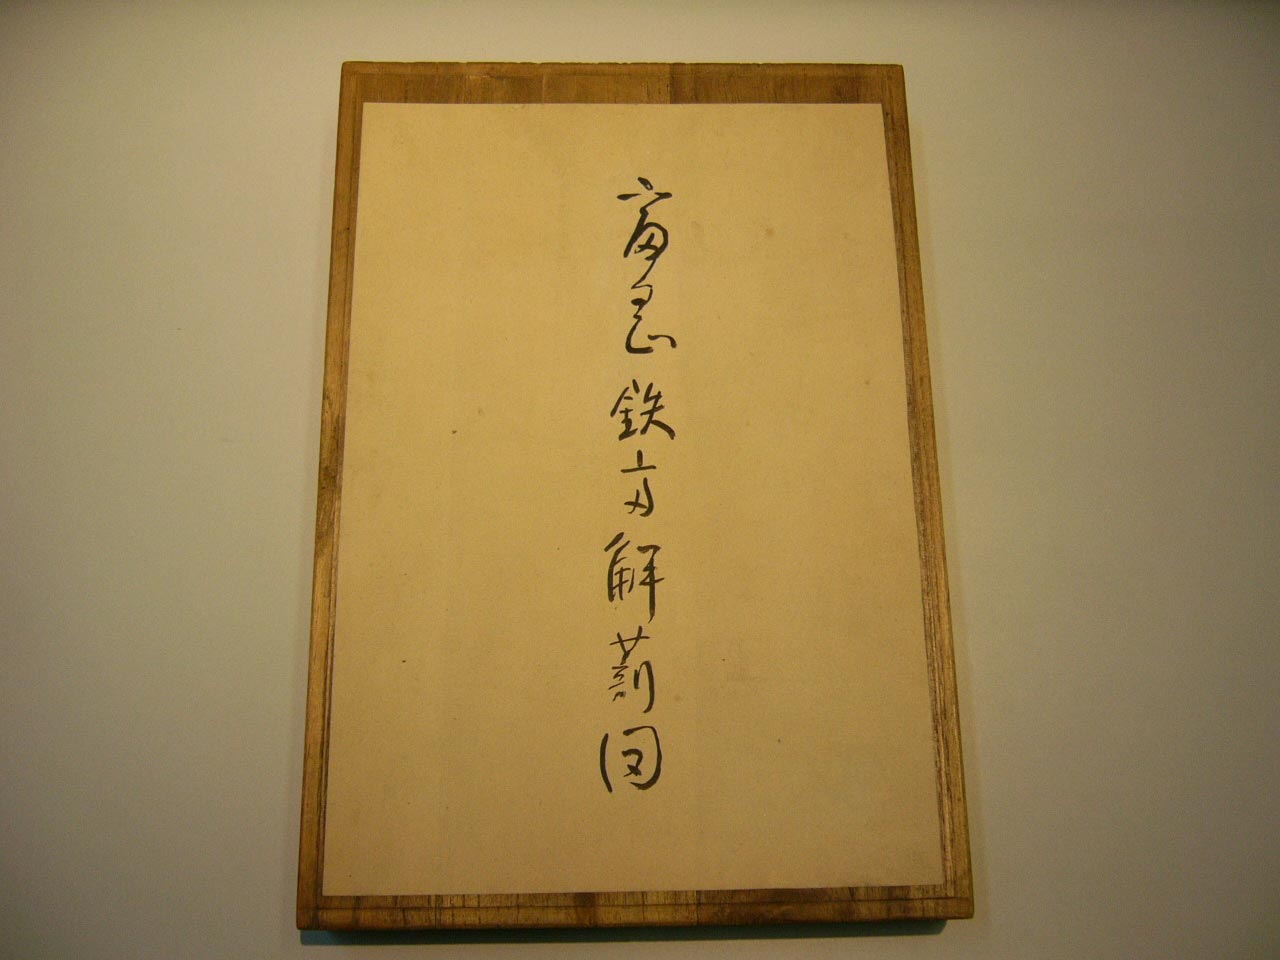 富岡鉄斎解図